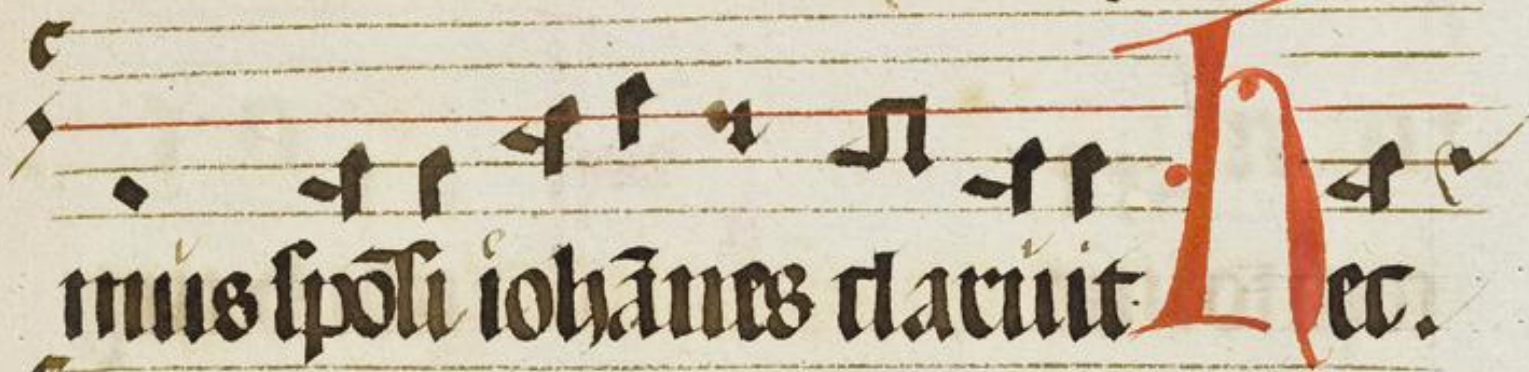 mus spōsi iohānes claruit hec.